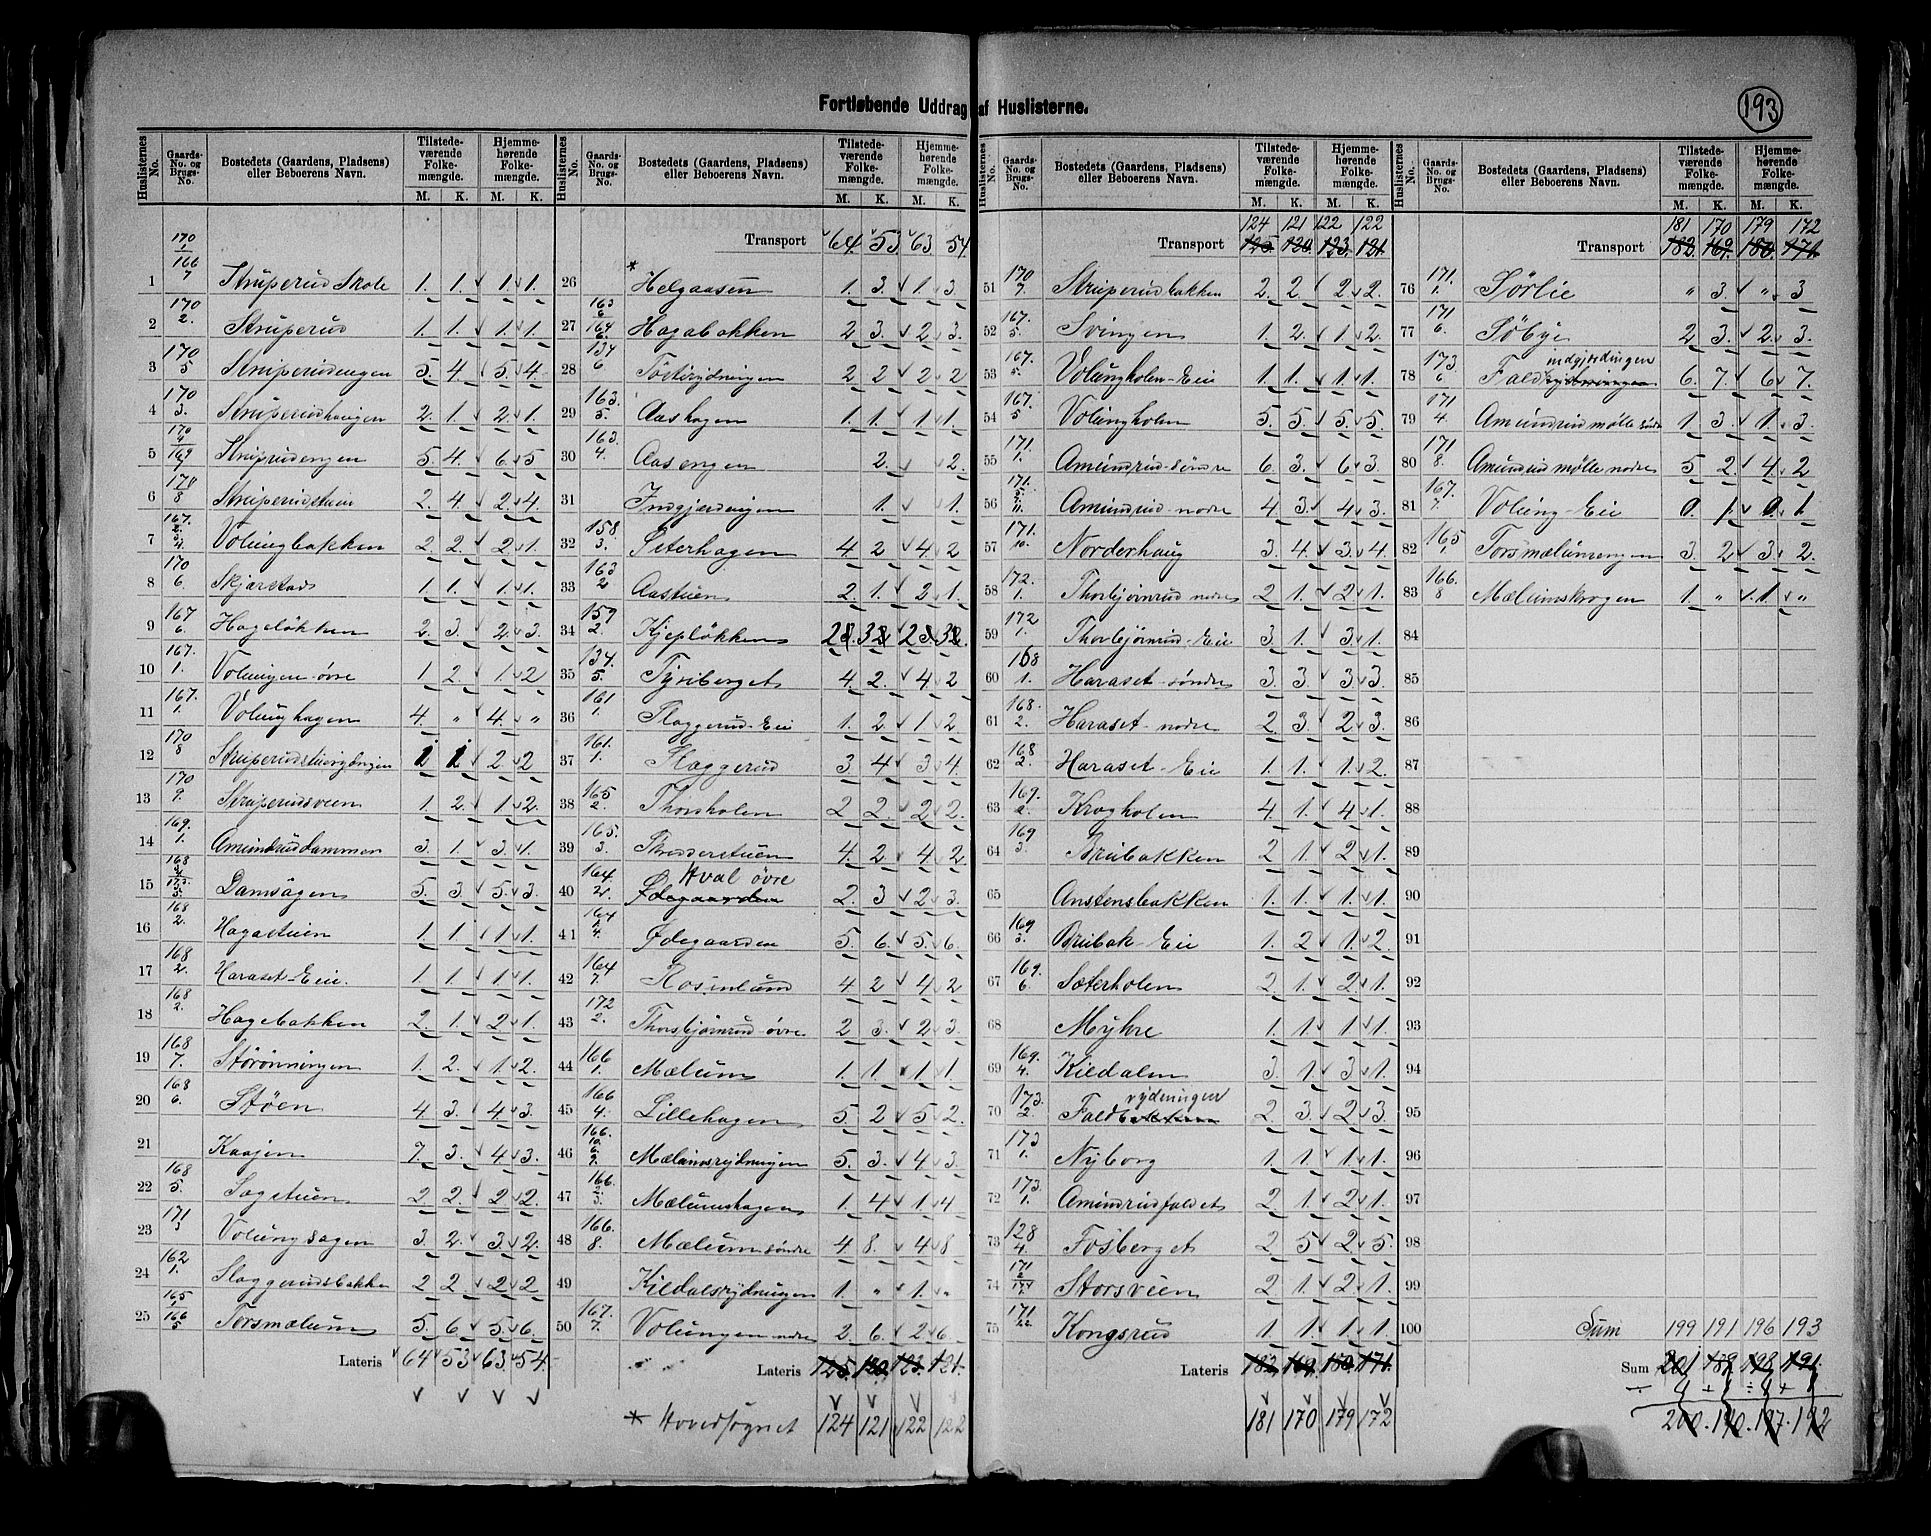 Fortløbende Uddrag af Huslisterne.
193
Huslisternes No. Gaards-No. og Brugs-No. Bostedets (Gaardens, Pladsens) eller Beboerens Navn. Tilstedeværende Folkemængde. M. K. Hjemmehørende Folkemængde. M. K.
170/1 166/7
1 Struperud Skole 1. 1. 1. 1.
2 170/2. Struperud 1. 1. 1. 1.
3 170/5 Struperudengen 5. 4. 5. 4.
4 170/3. Struperudhaugen 2. 1. 2. 1.
5 170/4 169/7 Struperudengen 5. 4. 6. 5
6 170/8 Struperudstuen 2. 4. 2. 4.
7 167. Volungbakken 2. 2. 2. 1.
8 170/6. Skjærstad 1. 1. 1. 1.
9 167/6. Hageløkken 2. 3. 2. 3.
10 167./1. Volungen øvre 1 2. 1. 2
11 167./1. Volunghagen 4. " 4. "
12 170/8 Struperudstuerydningen 1 1. 2 2
13 170/9. Struperudsveen 1. 2. 1. 2.
14 169./1. Amundruddammen 3. 1. 3. 1.
15 168 Damsagen 5. 3 5. 3.
16 168/2. Hagastuen 1. 1 1. 1.
17 168/2. Haraset-Eie. 1. 1. 1. 1.
18 168/2. Hagebakken 2. 1. 2. 1.
19 168/7. Størønningen 1. 2. 1. 2.
20 168/6. Støen 4. 3. 4. 3.
21 Kaajen 7. 3. 4. 3.
22 168/5. Sagstuen 2 2. 2. 2.
23 171/3 Volungsagen 3. 2. 3. 2.
24 162/1. Slaggerudsbakken 2 2. 2. 2
25 165/1 166/5 Torsmælum 5. 6. 5. 6.
Lateris 64 53 63 54.
Transport 64. 53 63 54
26 * Helgaasen 1. 3. 1. 3.
27 163/6 164/6. Hagabakken 2 3. 2. 3.
28 134/6 Tostirydningen 2 2 2 2
29 163./5. Aashagen 1. 1. 1 1.
30 163./4. Aasengen 2. 2.
31 Indgjærdingen 1. 1.
32 158./3. Seterhagen 4 2 4. 2
33 163/2 Aastuen 2. 1. 2 1.
34 159/2. Kjepløkken
35 134./5. Tyriberget 4. 2. 4. 2
36 161/1. Slaggerud-Eie 1. 2 1. 2
37 161./1. Slaggerud 3 4 3. 4.
38 165/2. Thorsholen 2 2. 2 2.
39 165./3. Skredderstuen 4. 2 4. 2.
40 164./2. Hval øvre 2 3 2 3.
41 164/4. Ødegaarden 5. 6. 5. 6.
42 164/7. Rosenlund 4 2 4. 2
43 172/2. Thorbjørnrud-øvre 2 3. 2. 3.
44 166/1. Mælum 1. 1. 1. 1
45 166/4. Lillehagen 5. 2 5 2.
46 166. Mælumsrydningen 5. 3. 4 3.
47 166./3. Mælumshagen 1. 4 1. 4
48 166./8. Mælum søndre 4 8. 4 8
49 Kildalsrydningen 1. " 1. "
50 167./7. Volungen nedre 2 6. 2 6
Lateris 125. 120. 123. 121.
* Hovedsognet 124 121 122 122
124 121 122 122
Transport 125. 120. 123. 121.
51 170/7. Struperudbakken 2. 2. 2 2.
52 167./5. Svingen 1. 2. 1. 2.
53 167./5. Volungholen-Eie 1. 1. 1. 1.
54 167./5 Volungholen 5. 5. 5. 5.
55 171./1. Amundrud-søndre 6. 3. 6. 3.
56 171. Amundrud-nedre 4. 3. 4. 3.
57 171./10. Norderhaug 3. 4. 3. 4.
58 172./1. Thorbjørnrud nedre 2 1. 2 1.
59 172/1. Thorbjørnrud-Eie 3. 1. 3 1.
60 168/1. Haraset-søndre 3. 3. 3 3.
61 168./2. Haraset-nedre 2 3. 2. 3.
62 168/2. Haraset-Eie 1. 1. 1. 2.
63 169./2. Krogholen 4. 1. 4 1.
64 169/3. Brubakken 2 1. 2 1.
65 Anstensbakken 1. 1. 1. 1.
66 169/3. Brubak-Eie 1. 2 1. 2.
67 169./6. Sæterholen 2 1. 2. 1.
68 Myhre 1. 1. 1. 1.
69 169./4. Kildalen 3. 1. 3 1.
70 173./2. Faldrydningen 2 3. 2 3.
71 173/1. Nyborg 1. 1. 1. 1.
72 173./1. Amundrudfaldet 2. 1. 2 1.
73 128/4. Fosberget 2 5 2 5.
74 171 Storsveen 2. 1. 2. 1.
75 171./22. Kongsrud 1. 1. 1. 1.
Lateris 182. 169. 180. 171.
181 170 179 172
181 170 179 172
Transport 182. 169. 180. 171
76 171./1. Sørlie " 3. " 3
77 171/6. Søbye 2 3. 2. 3.
78 173./6 Faldindgjærdingen 6. 7. 6 7.
79 171/4 Amundrudmølle søndre 1. 3. 1. 3.
80 171/8. Amundrudmølle nedre 5 2. 4. 2
81 167./7. Volung-Eie 0. 1. 0. 1
82 165/1. Torsmælumengen 3. 2 3. 2.
83 166./8 Mælumskrogen 1. " 1. "
84
85
86
87
88
89
90
91
92
93
94
95
96
97
98
99
100 Sum 199 191 196 193
Sum 201 189 198 191.
200. 190. 197. 192